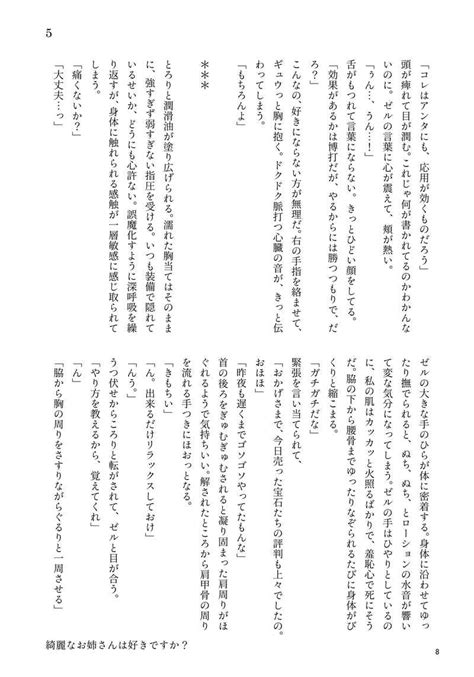 5
「コレはアンタにも、応用が効くものだろう」
頭が痺れて目が潤む。これじゃ何が書かれてるのかわかんな
いのに。ゼルの言葉に心が震えて、頬が熱い。
「ぅん…、うん…！」
舌がもつれて言葉にならない。きっとひどい顔をしてる。
「効果があるかは博打だが、やるからには勝つつもりで、だ
ろ？」
こんなの、好きにならない方が無理だ。右の手指を絡ませて、
ギュウっと胸に抱く。ドクドク脈打つ心臓の音が、きっと伝
わってしまう。
「もちろんよ」
＊＊＊
とろりと潤滑油が塗り広げられる。濡れた胸当てはそのまま
に、強すぎず弱すぎない指圧を受ける。いつも装備で隠れて
いるせいか、どうにも心許ない。誤魔化すように深呼吸を繰
り返すが、身体に触れられる感触が一層敏感に感じ取られて
しまう。
「痛くないか？」
「大丈夫…っ」
ゼルの大きな手のひらが体に密着する。身体に沿わせてゆっ
たり撫でられると、ぬち、ぬち、とローションの水音が響い
て変な気分になってしまう。ゼルの手はひやりとしているの
に、私の肌はカッカッと火照るばかりで、羞恥心で死にそう
だ。脇の下から腰骨までゆったりなぞられるたびに身体がび
くりと縮こまる。
「ガチガチだな」
緊張を言い当てられて、
「おかげさまで、今日売った宝石たちの評判も上々でしたの。
おほほ」
「昨夜も遅くまでゴソゴソやってたもんな」
首の後ろをぎゅむぎゅむされると凝り固まった肩周りがほ
ぐれるようで気持ちいい。解されたところから肩甲骨の周り
を流れる手つきにほおっとなる。
「きもちい」
「ん。出来るだけリラックスしておけ」
「んぅ」
うつ伏せからころりと転がされて、ゼルと目が合う。
「やり方を教えるから、覚えてくれ」
「ん」
「脇から胸の周りをさすりながらぐるりと一周させる」
綺麗なお姉さんは好きですか？
8